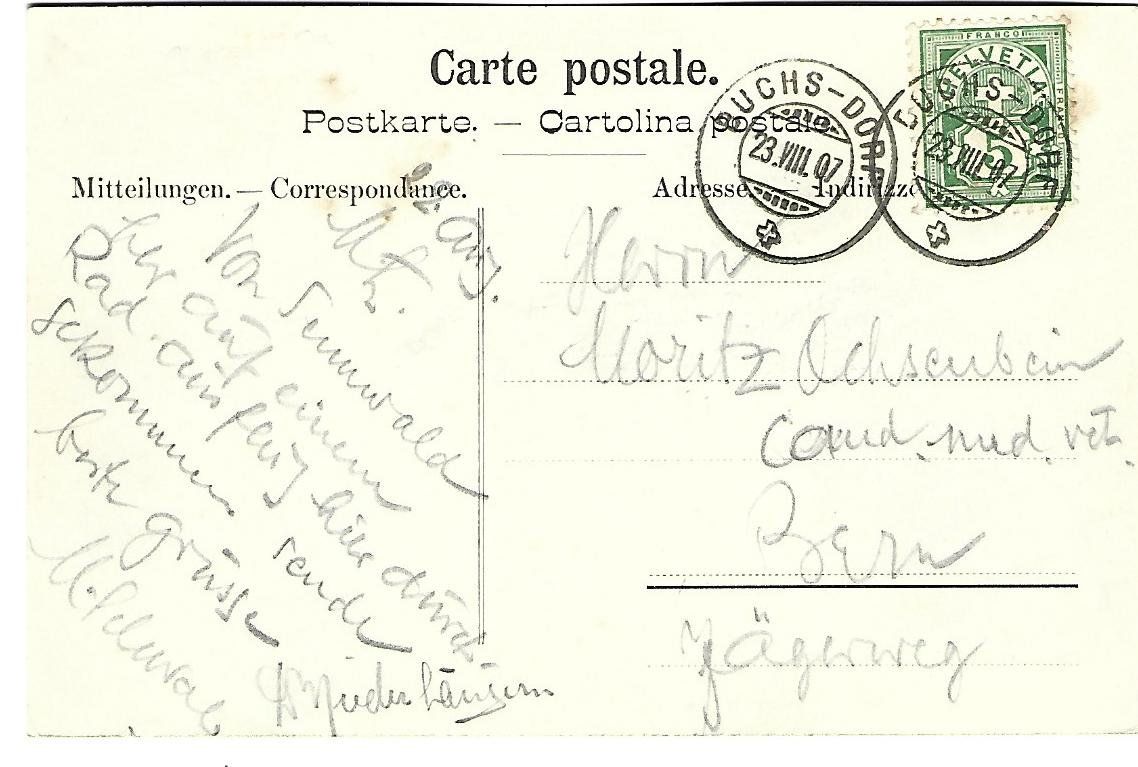 Carte postale.
Postkarte. — Cartolina postale
Mitteilungen. — Correspondance.
Adresse. — Indirizzo
FRANCO
HELVETIA
5
BUCHS-DORF
23.VIII.07
BUCHS-DORF
23.VIII.07
22 Aug.
Von Sennwald
her auf einem
Rad hier durch
gekommen sende
beste Grüsse
Herrn
Moritz Ochsenbein
Cand. med. vet.
Bern
Jägerweg